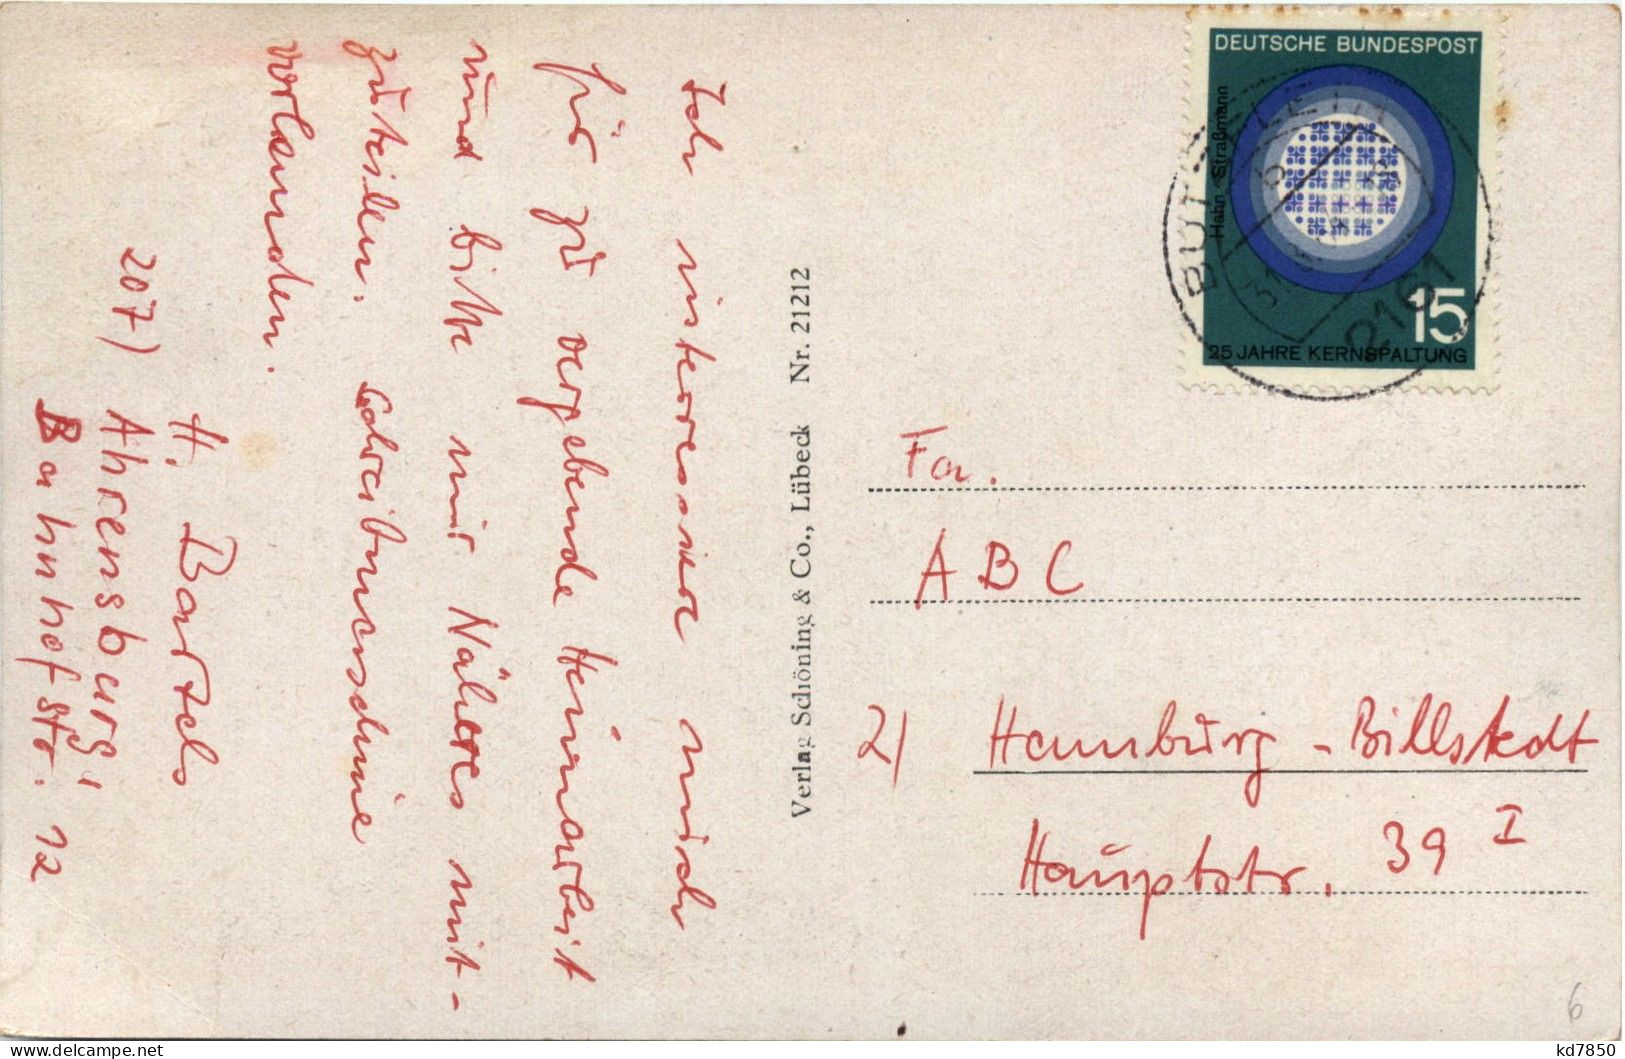 Ich interessiere mich
für zu vergebende Heimarbeit
und bitte mir Näheres mit-
zuteilen. Schreibmaschine
vorhanden.
H. Bartels
207) Ahrensburg
Bahnhofstr. 12
Verlag Schöning & Co., Lübeck Nr. 21212
DEUTSCHE BUNDESPOST
Hahn - Straßmann
15
25 JAHRE KERNSPALTUNG
2161
Fa.
ABC
2) Hamburg - Billstedt
Hauptstr. 39 I
6
kd7850